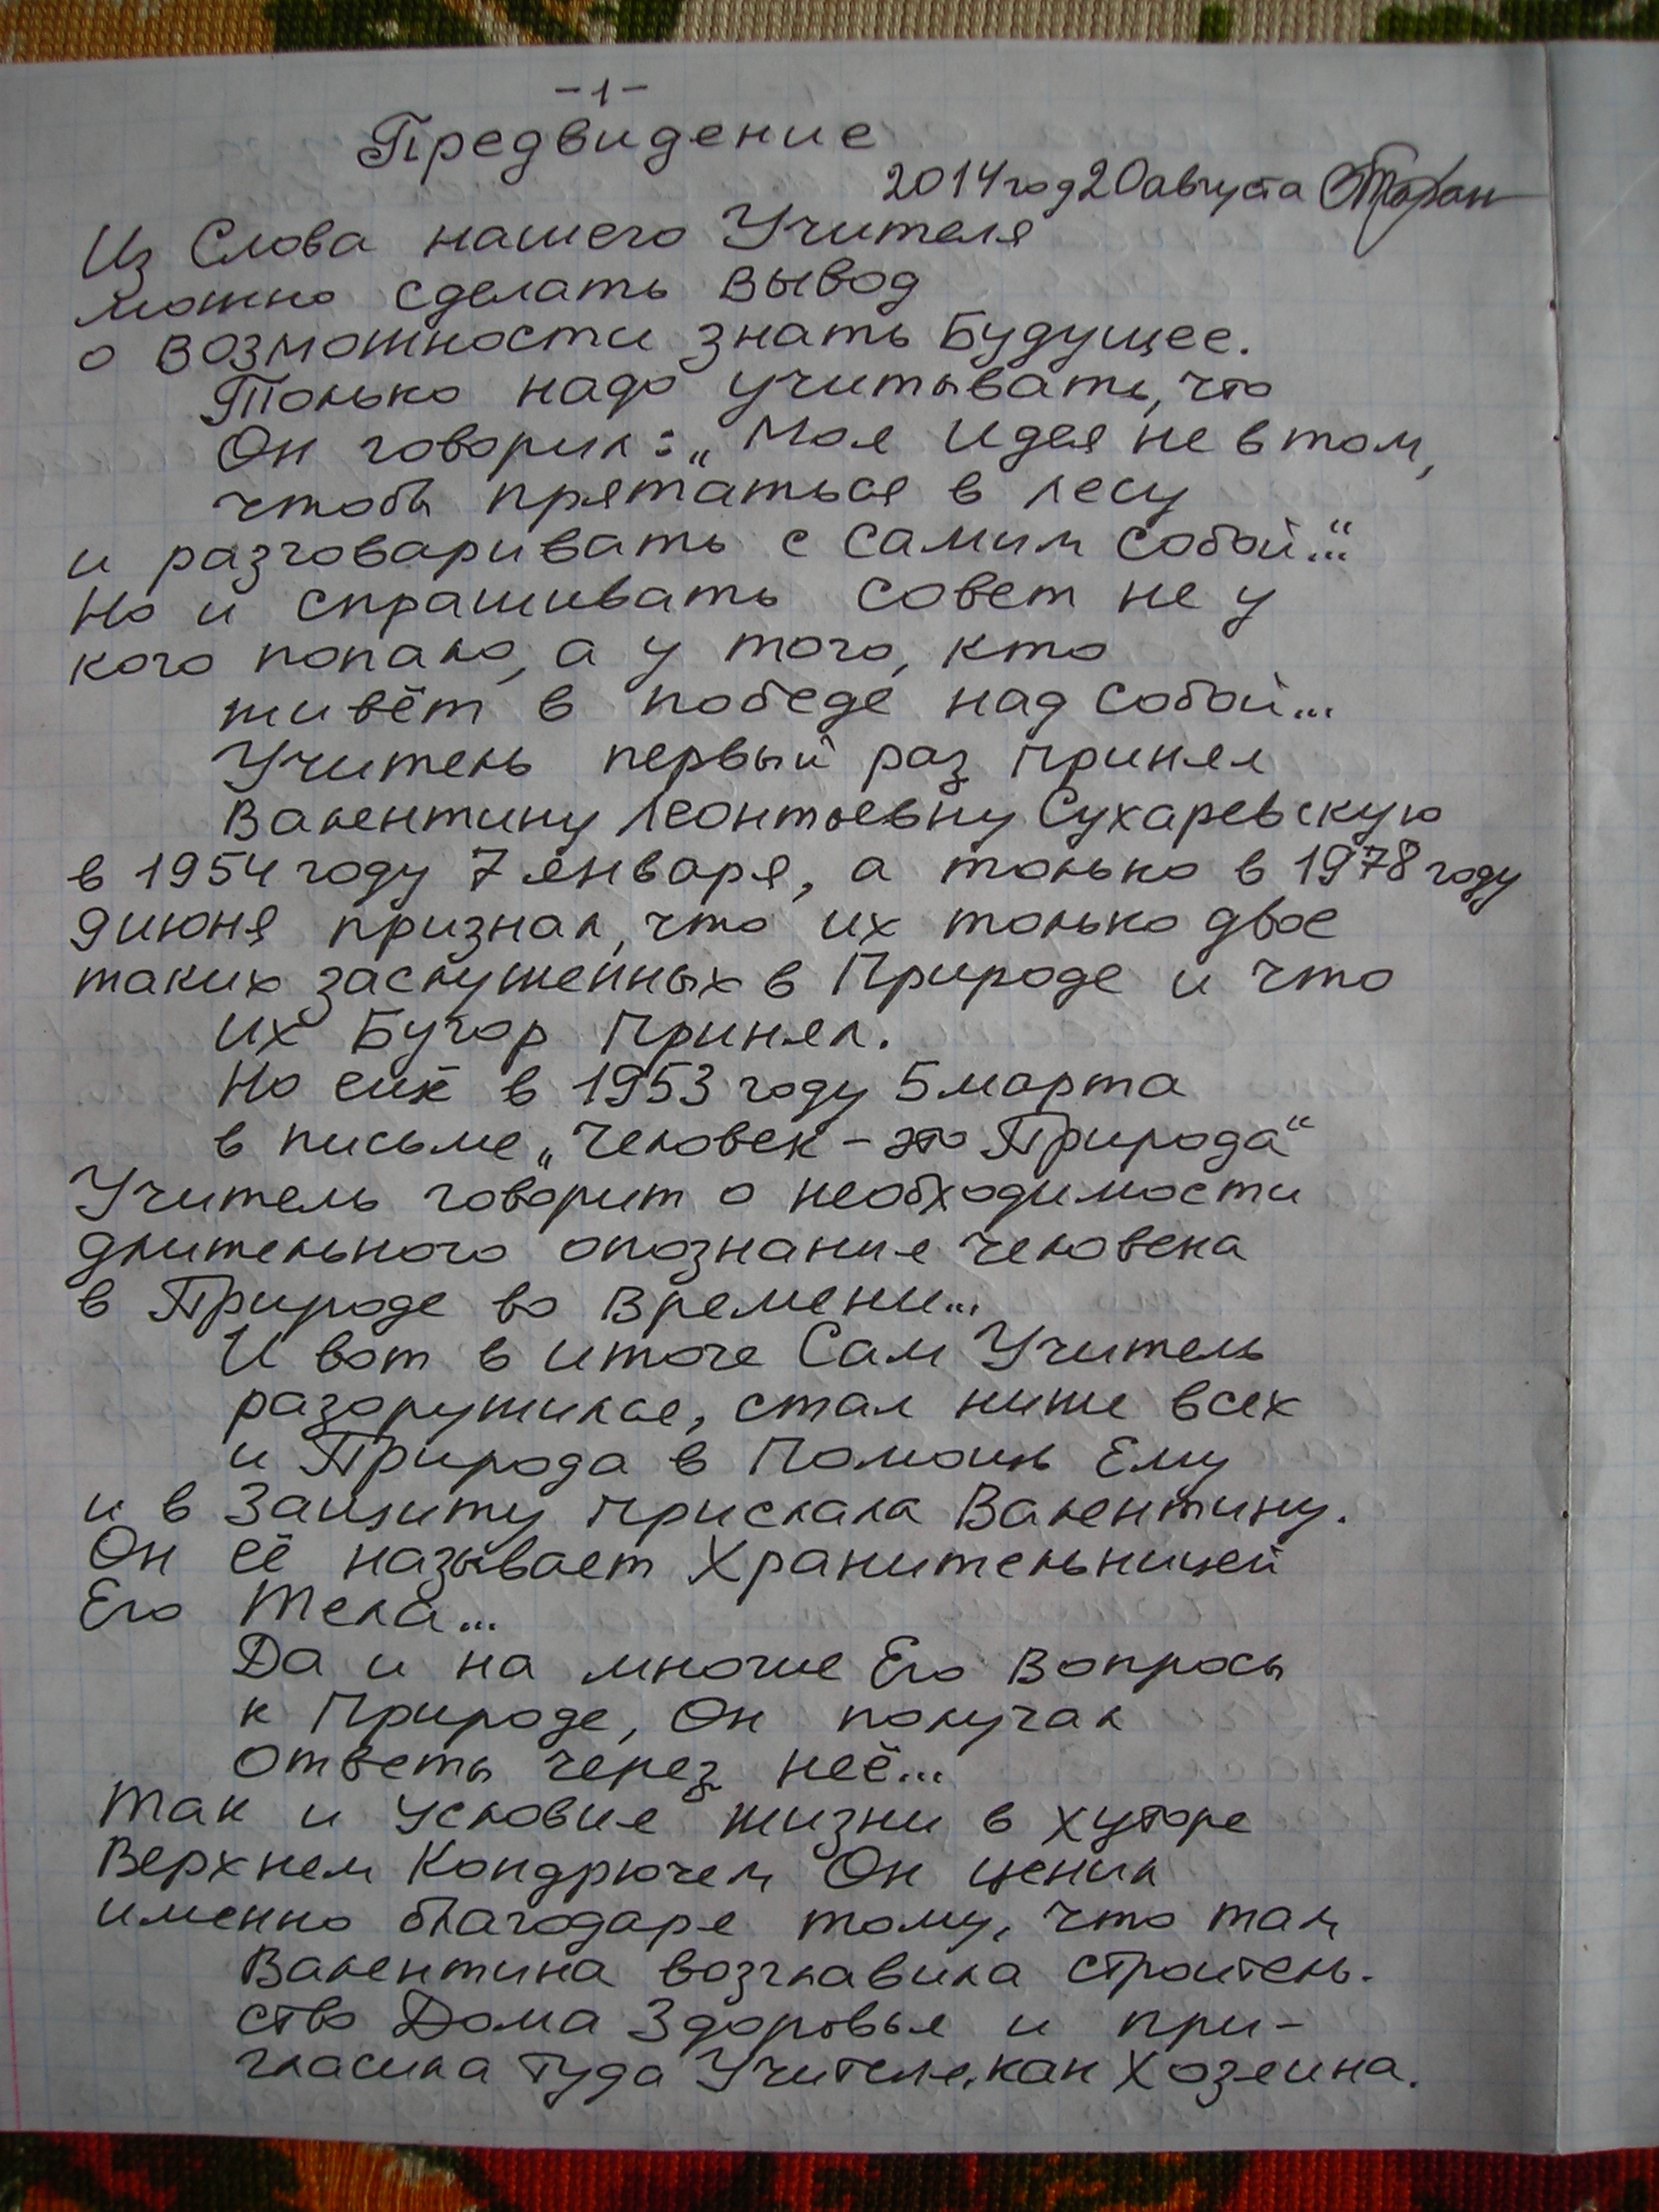 -1-
Предвидение
2014 год 20 августа
Из Слова нашего Учителя
можно сделать вывод
о возможности знать Будущее.
Только надо учитывать, что
Он говорил: „Моя Идея не в том,
чтобы прятаться в лесу
и разговаривать с самим собой..."
Но и спрашивать совет не у
кого попало, а у того, кто
живёт в победе над собой...
Учитель первый раз принял
Валентину Леонтьевну Сухаревскую
в 1954 году 7 января, а только в 1978 году
9 июня признал, что их только двое
таких заслуженных в Природе и что
их Бугор принял.
Но ещё в 1953 году 5 марта
в письме „Человек – это Природа"
Учитель говорит о необходимости
длительного опознания человека
в Природе во времени...
И вот в итоге Сам Учитель
разоружился, стал ниже всех
и Природа в Помощь Ему
и в Защиту прислала Валентину.
Он её называет Хранительницей
Его Тела...
Да и на многие Его вопросы
к Природе, Он получал
ответы через неё...
Так и условия жизни в хуторе
Верхнем Кондрючем Он ценил
именно благодаря тому, что там
Валентина возглавила строитель-
ство Дома Здоровья и при-
гласила туда Учителя, как Хозяина.